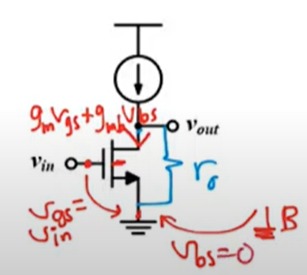 gmvgs+gmbvbs
vout
vin
ro
vgs=
vin
B
vbs=0